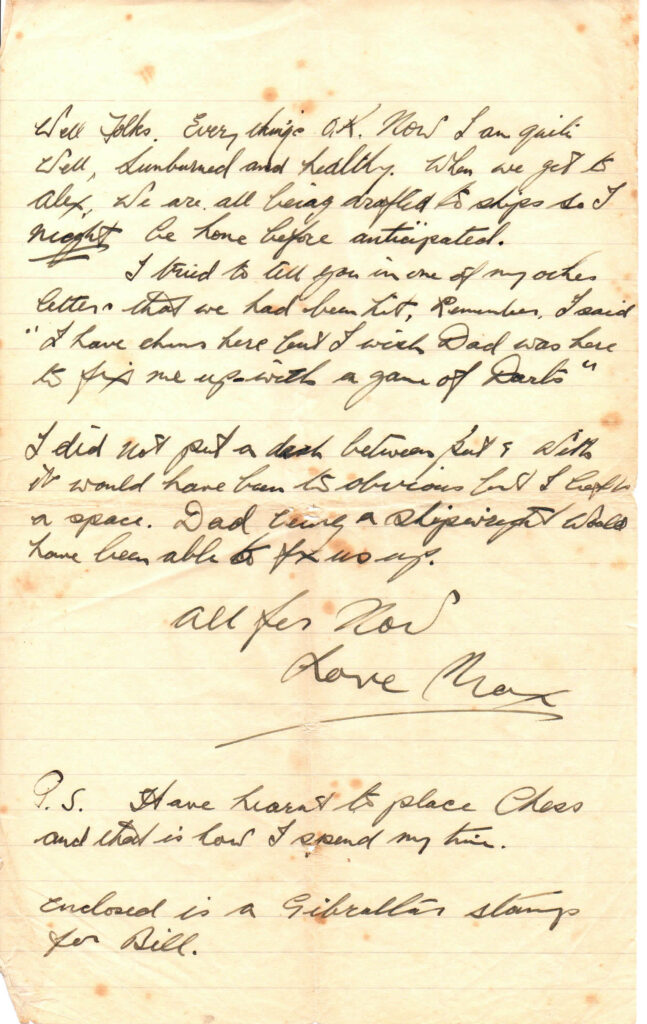 Well Folks. Everything's O.K. Now I am quite
Well, Sunburned and healthy. When we get to
Alex, We are all being drafted to ships so I
might be home before anticipated.
I tried to tell you in one of my other
letters that we had been hit, Remember, I said
"I have chums here but I wish Dad was here
to fix me up with a game of Darts"
I did not put a dash between but & with
it would have been to obvious but I left
a space. Dad being a shipwright would
have been able to fix us up.
All for Now
Love Max
P.S. Have learnt to place Chess
and that is how I spend my time.
Enclosed is a Gibraltar stamp
for Bill.